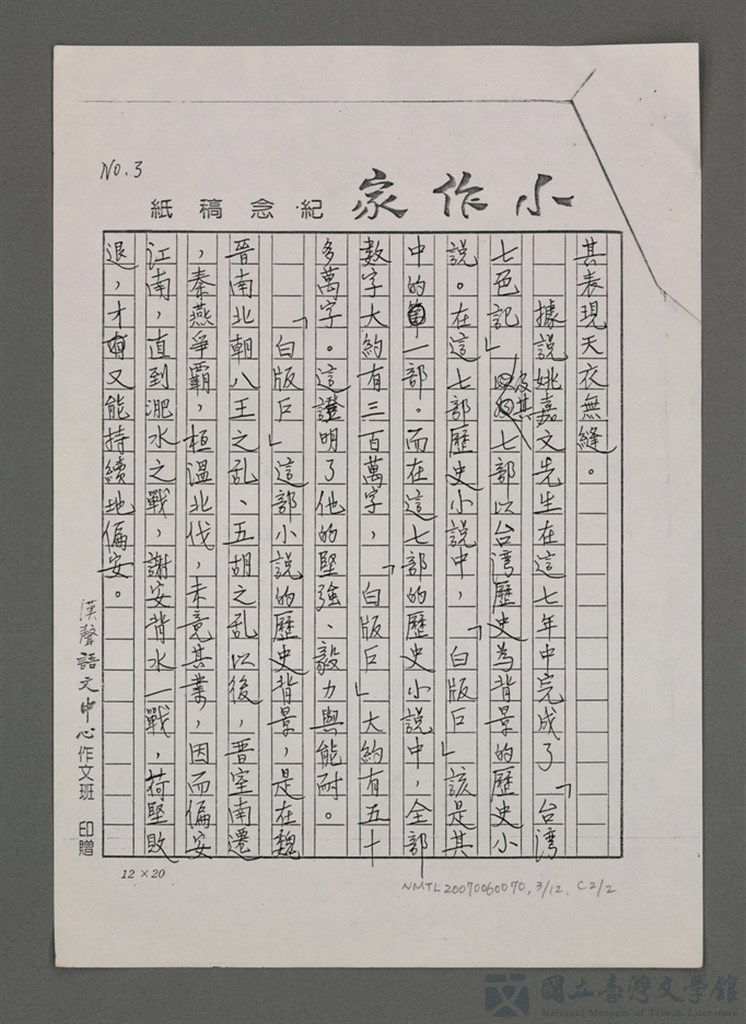 No.3
小作家 紀念稿紙
其表現天衣無縫。
據說姚嘉文先生在這七年中完成了「台湾
七色記」及其七部以台湾歷史為背景的歷史小
說。在這七部歷史小說中,「白版戶」該是其
中的一部。而在這七部的歷史小說中,全部
数字大約有三百萬字,「白版戶」大約有五十
多萬字。這證明了他的堅強、毅力與能耐。
「白版戶」這部小說的歷史背景,是在魏
晉南北朝八王之乱、五胡之乱以後,晋室南遷
,秦燕爭霸,桓溫北伐,未竟其業,因而偏安
江南,直到淝水之戰,謝安背水一戰,苻堅敗
退,才又能持續地偏安。
漢聲語文中心作文班 印贈
12×20
NMTL20070060070, 3/12, C2/2
國立臺灣文學館
National Museum of Taiwan Literature